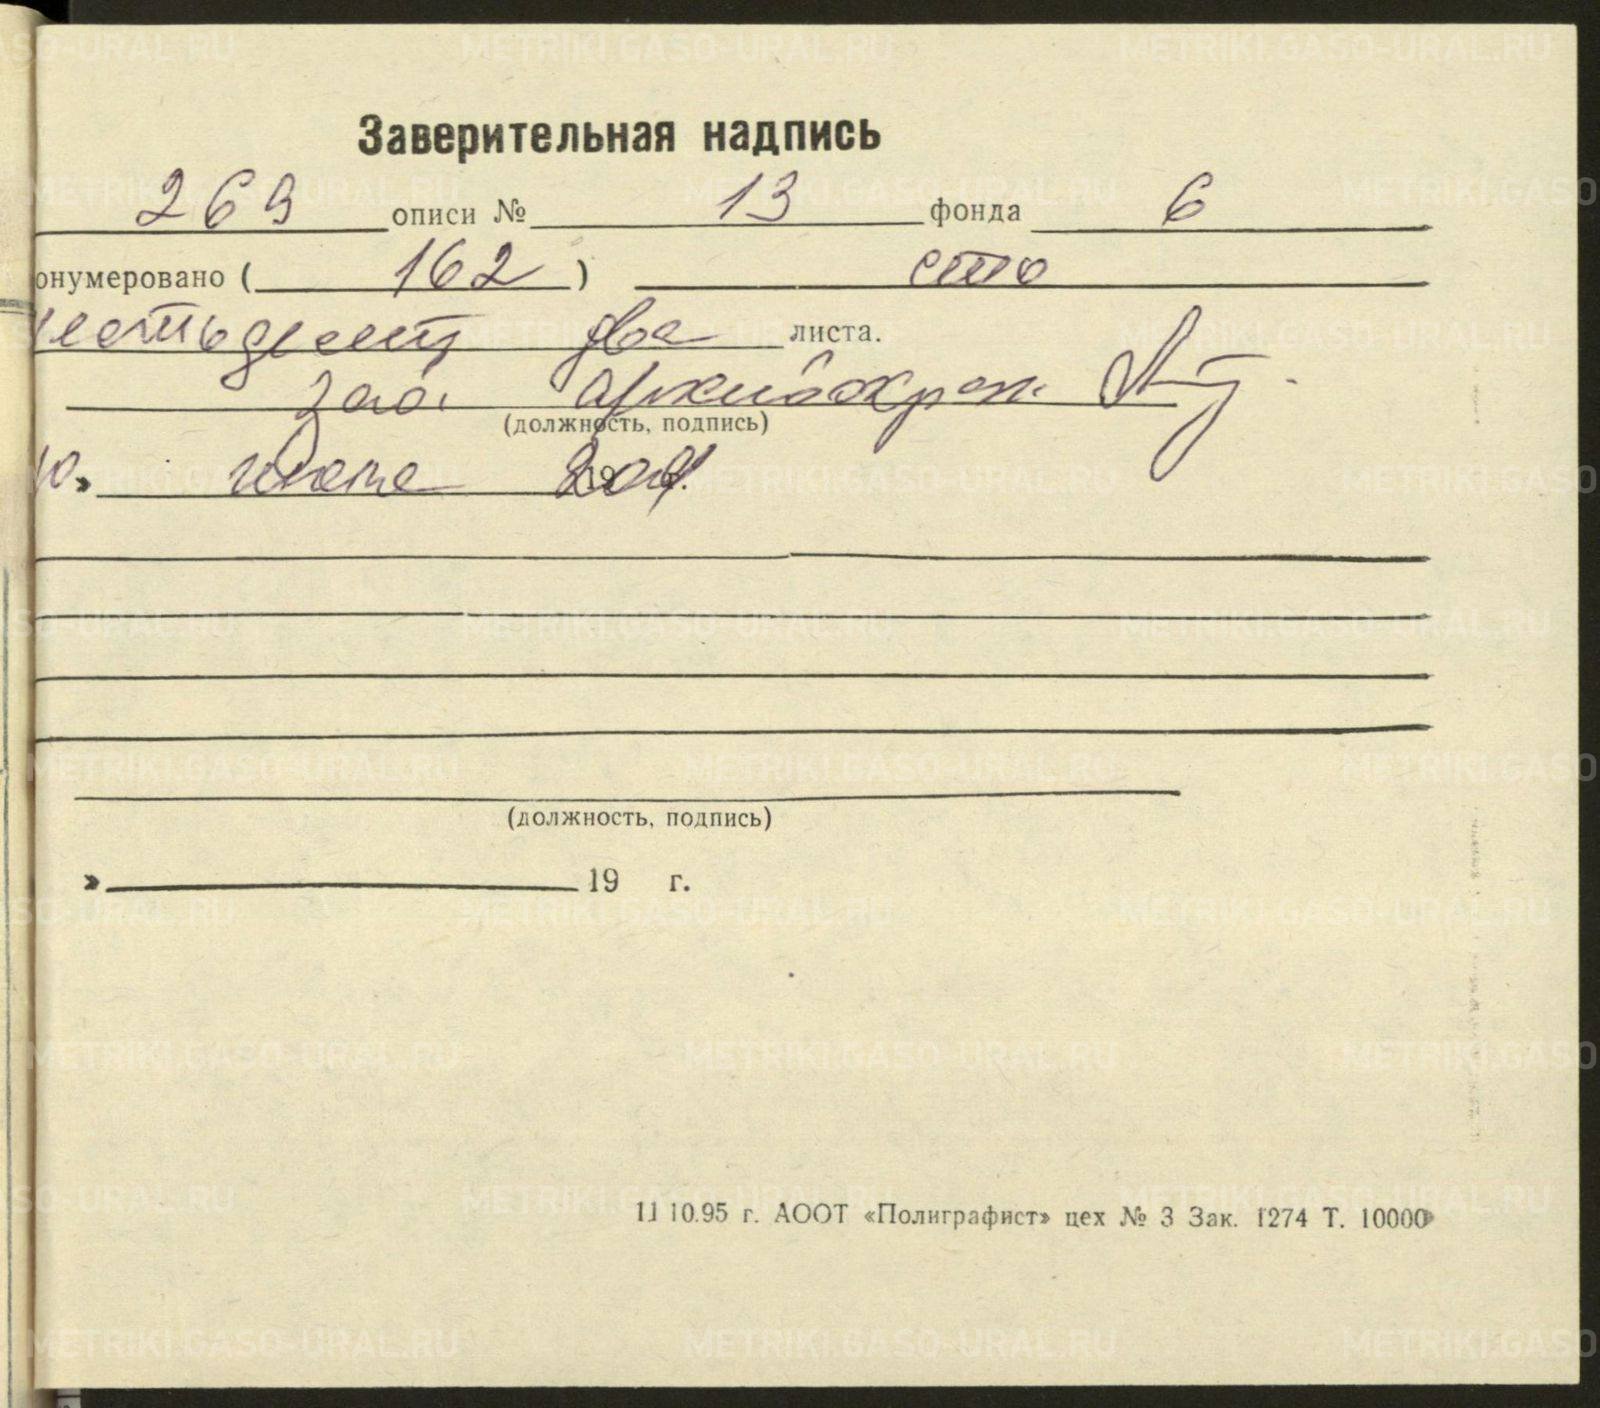 Заверительная надпись
269 описи № 13 фонда 6
онумеровано ( 162 ) сто
шестьдесят два листа.
зав. архивохран.
(должность, подпись)
10 » июня
(должность, подпись)
» 19 г.
11 10.95 г. АООТ «Полиграфист» цех № 3 Зак. 1274 Т. 10000
METRIKI.GASO-URAL.RU